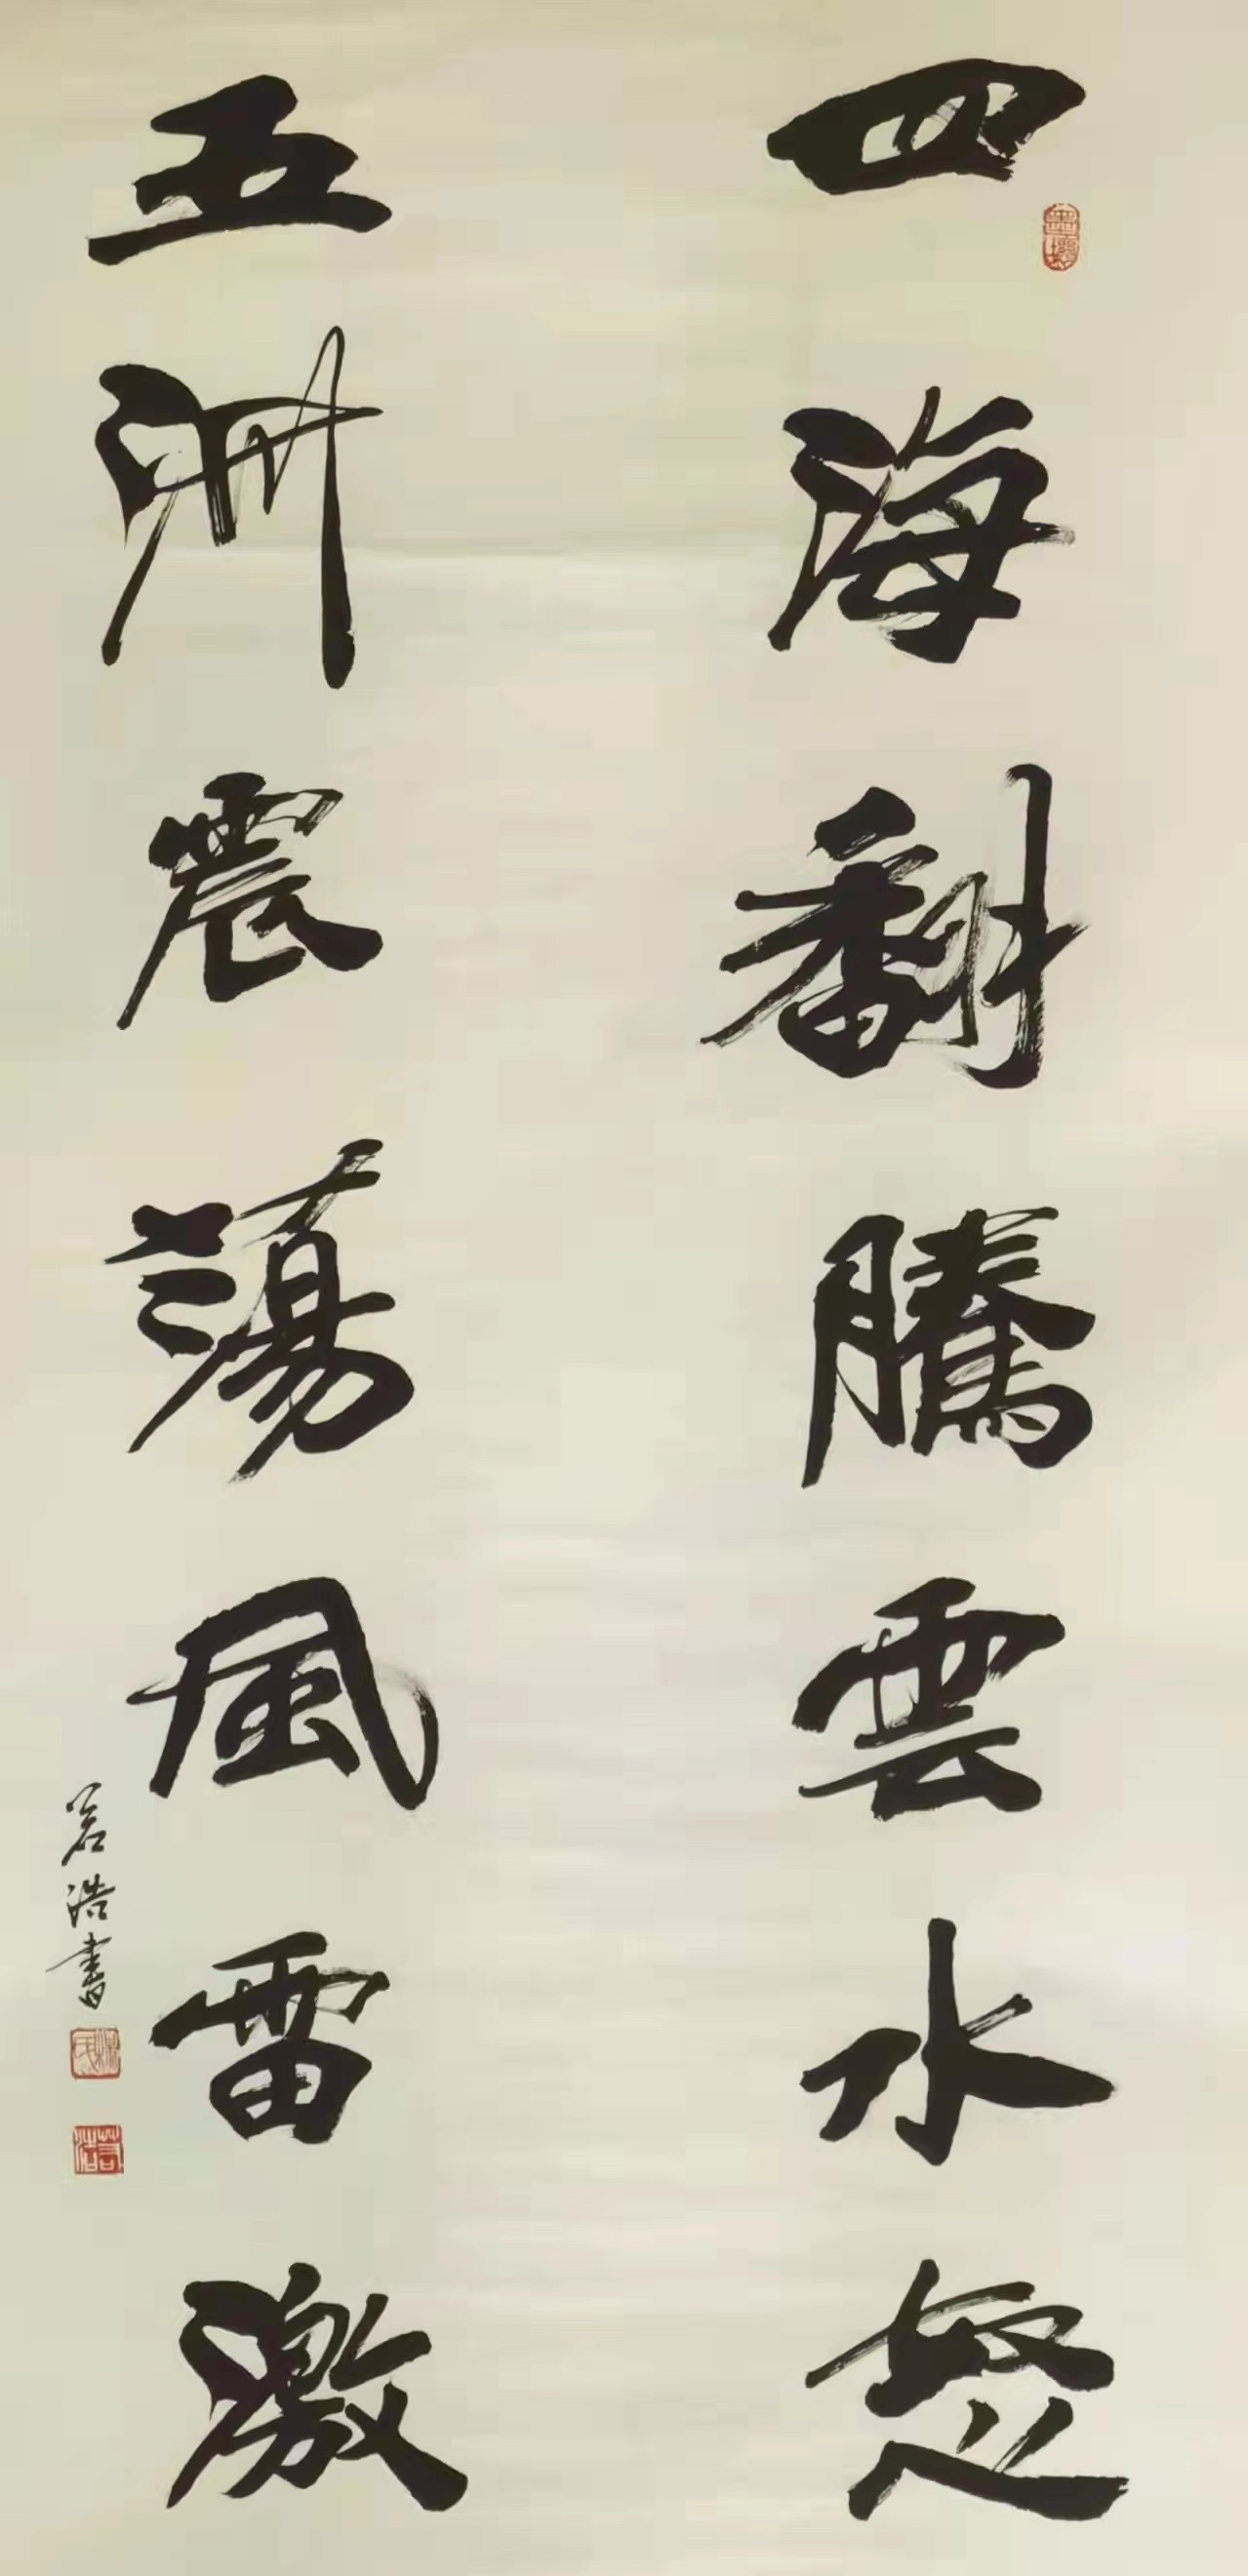 四海翻騰雲水怒
五洲震蕩風雷激
若浩書